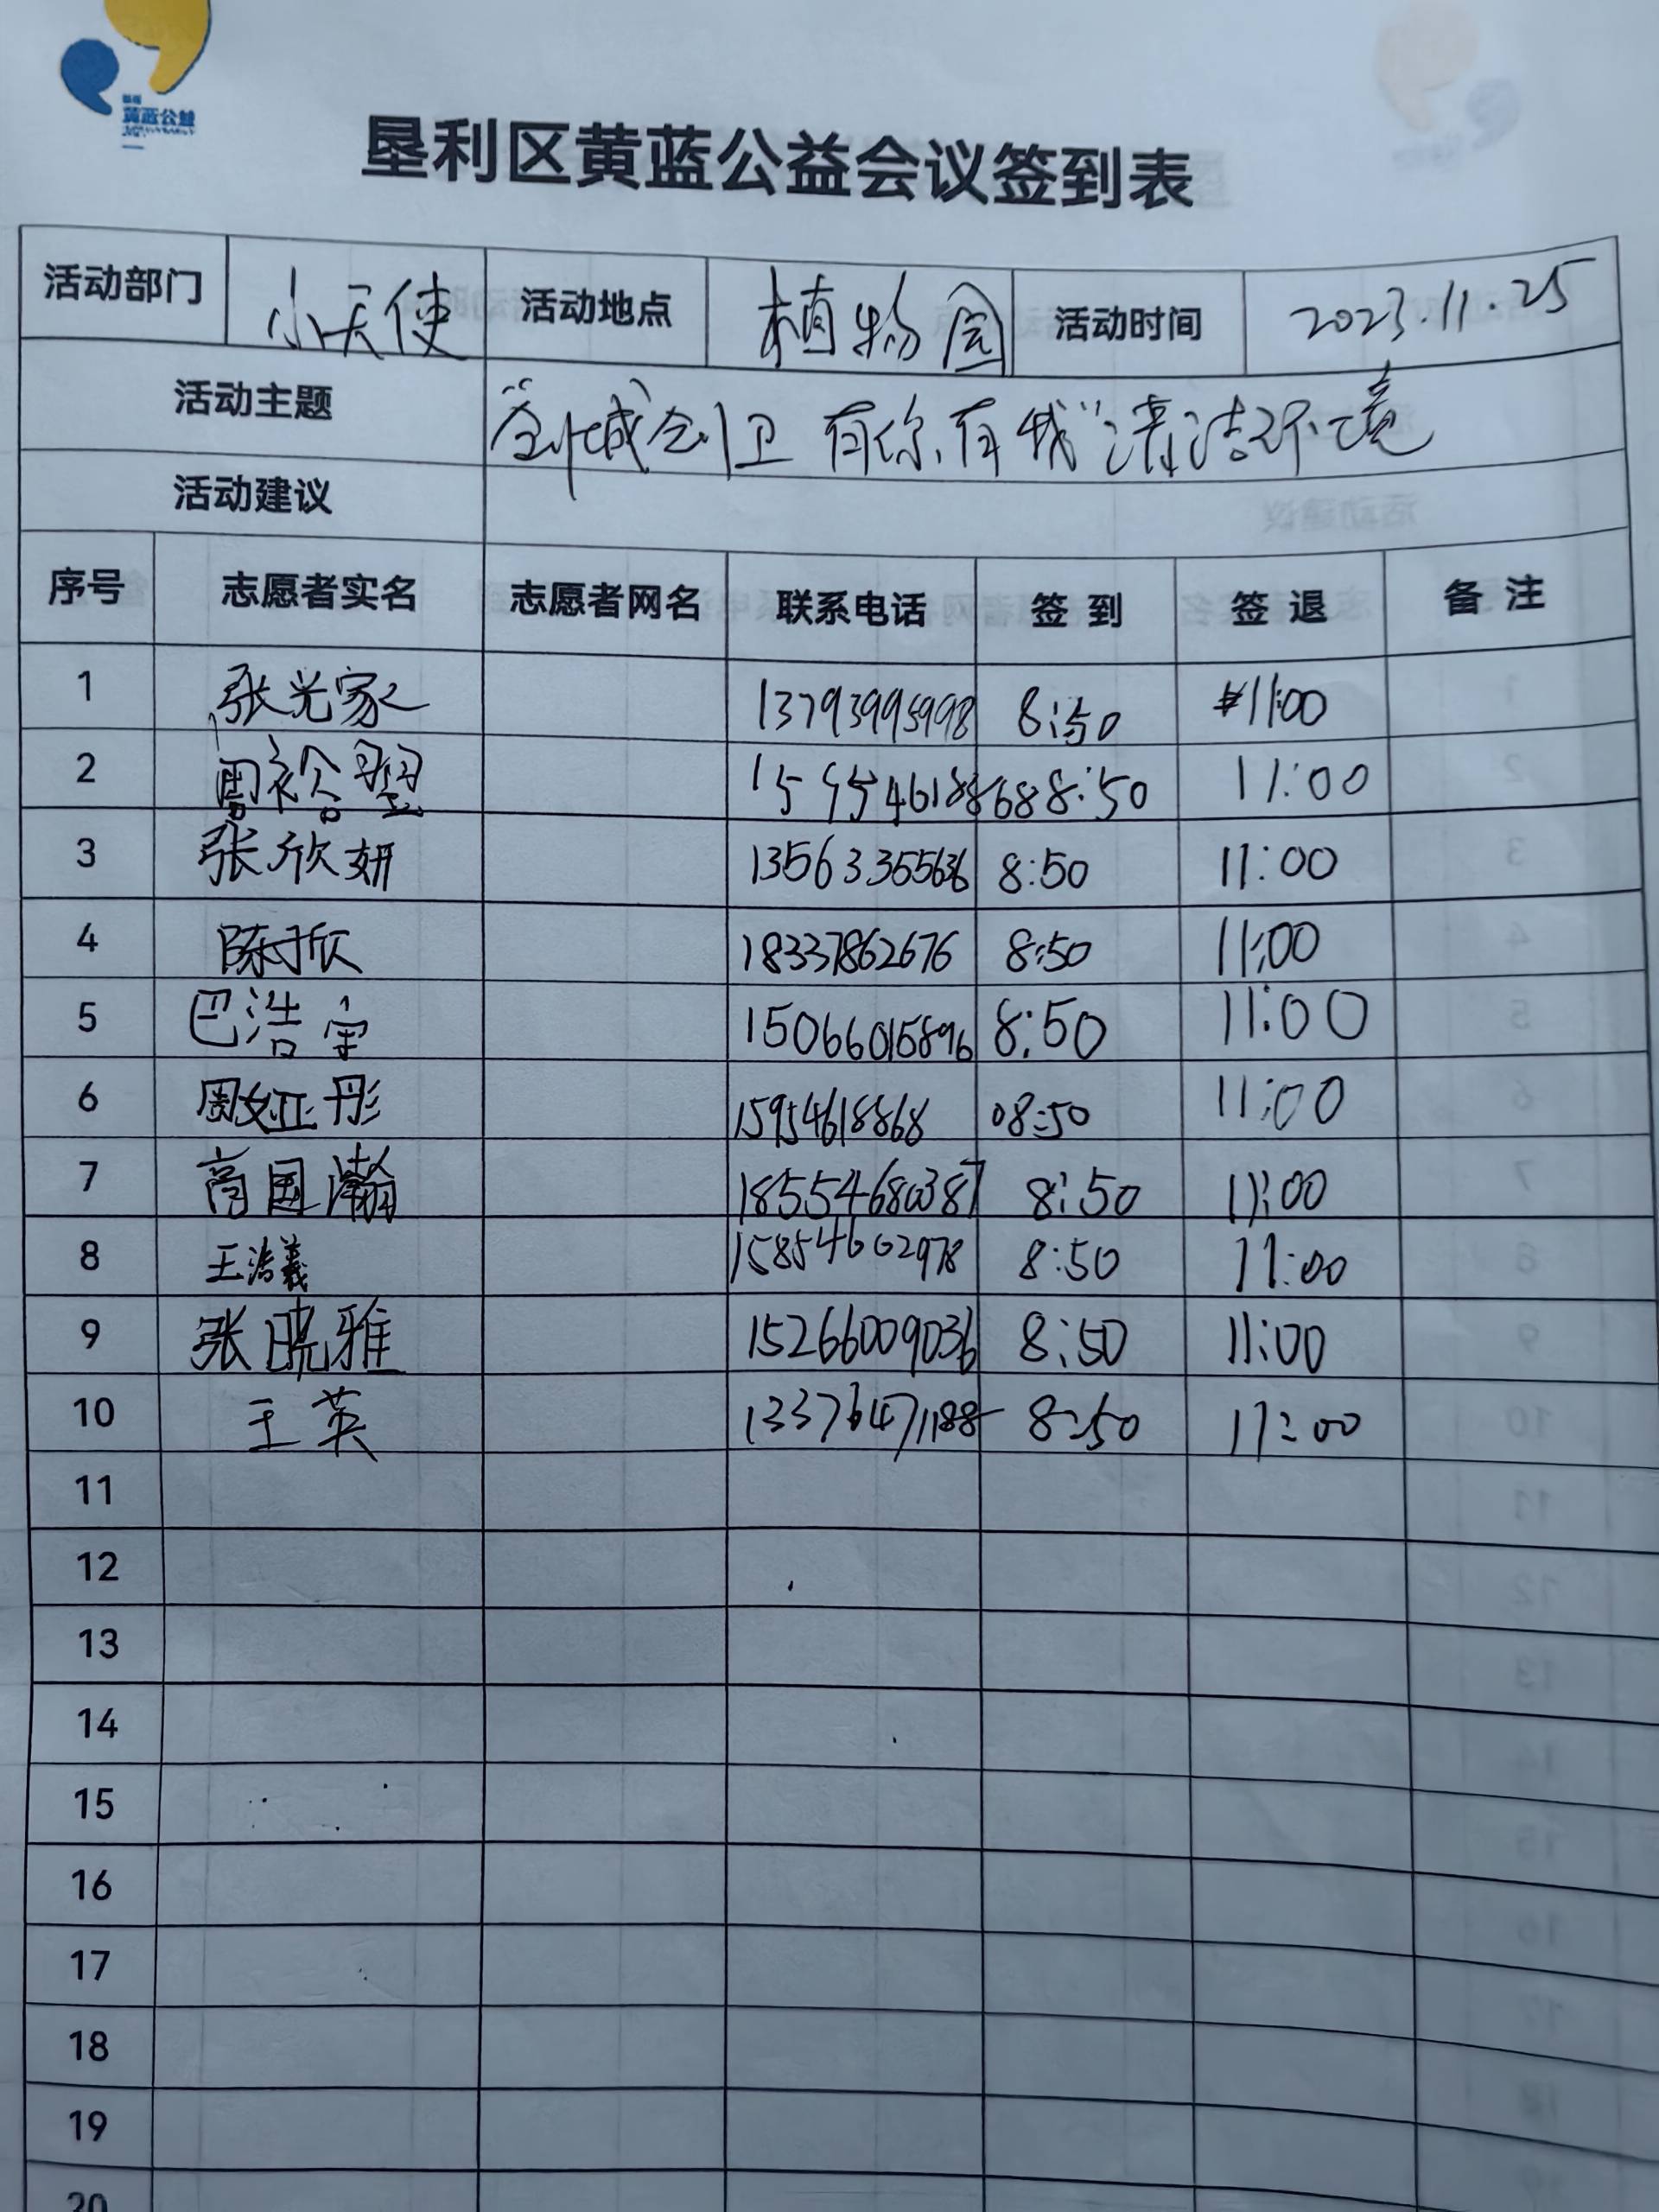 黄蓝公益
垦利区黄蓝公益会议签到表
活动部门 小天使 活动地点 植物园 活动时间 2023.11.25
活动主题 “创城创卫 有你有我”清洁环境
活动建议
序号 志愿者实名 志愿者网名 联系电话 签到 签退 备注
1 张光家 13793995998 8:50 11:00
2 周 15954618868 8:50 11:00
3 张欣妍 13563355636 8:50 11:00
4 陈于欣 18337862676 8:50 11:00
5 巴浩宇 15066015896 8:50 11:00
6 周娅彤 15954618868 08:50 11:00
7 商国瀚 18554680387 8:50 11:00
8 王浩羲 15854602978 8:50 11:00
9 张晓雅 15266009036 8:50 11:00
10 王英 13376471188 8:50 11:00
11
12
13
14
15
16
17
18
19
20